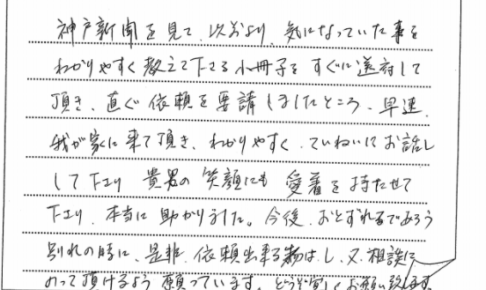 神戸新聞を見て、以前より、気になっていた事を
わかりやすく教えて下さる小冊子をすぐに送付して
頂き、直ぐ依頼を要請しましたところ、早速、
我が家に来て頂き、わかりやすく、ていねいにお話し
して下さり 貴男の笑顔にも 愛着を持たせて
下さり、本当に助かりました。今後、おとずれるであろう
別れの時に、是非、依頼出来る し、又、相談に
のって頂けるよう 願っています。どうぞ宜しくお願い致します。